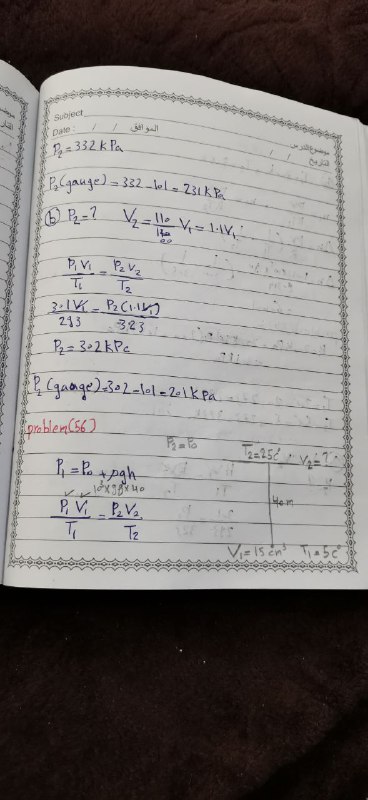 Subject
موضوع الدرس
Date: / / الموافق
التاريخ / /
P₂ = 332 kPa
P₂ (gauge) = 332 - 101 = 231 kPa
(b) P₂ = ? V₂ = 110/100 V₁ = 1.1V₁
P₁V₁/T₁ = P₂V₂/T₂
301V₁/293 = P₂(1.1V₁)/323
P₂ = 302 kPa
P₂ (gauge) = 302 - 101 = 201 kPa
problem (56)
P₂ = P₀ T₂ = 25c° V₂ = ?
P₁ = P₀ + ρgh
10³×9.8×40
40m
P₁V₁/T₁ = P₂V₂/T₂
V₁ = 15 cm³ T₁ = 5c°